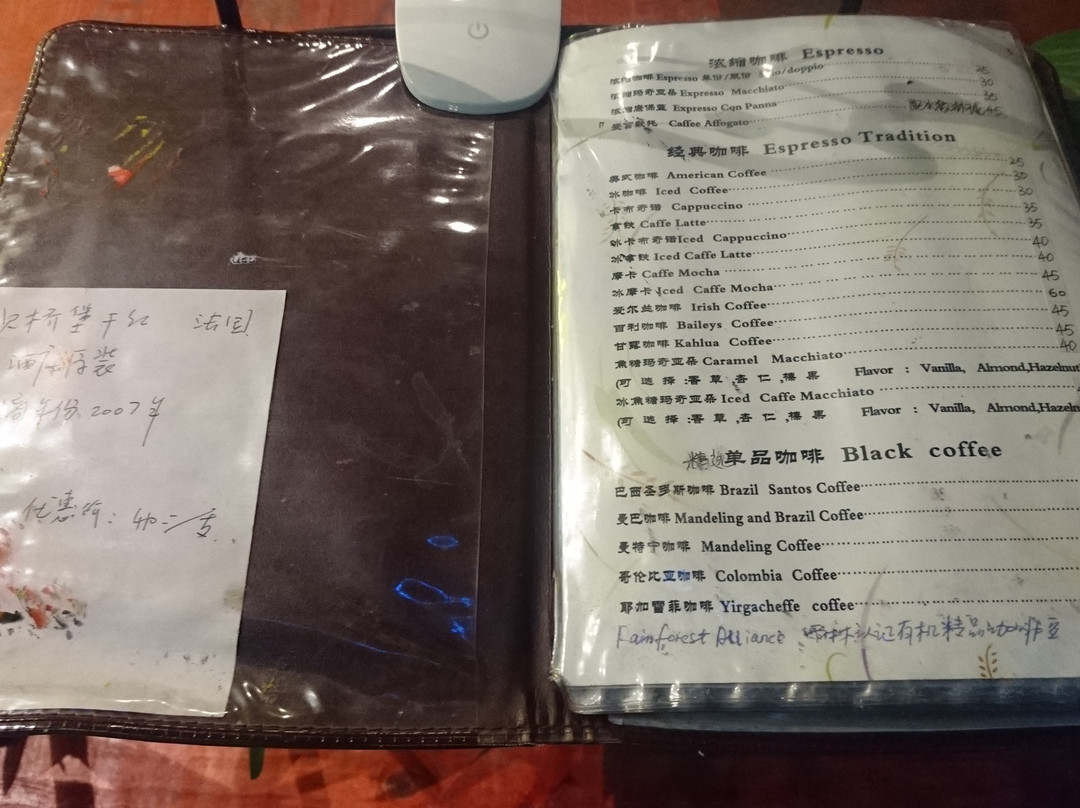 桥堡干红 法国
原装
年份 2007年
优惠价: 支
浓缩咖啡 Espresso
浓缩咖啡Espresso 单份/双份 solo/doppio 25
浓缩玛奇亚朵 Espresso Macchiato 30
浓缩康保蓝 Expresso Cqn Panna 35
Caffee Affogato 45
经典咖啡 Espresso Tradition
美式咖啡 American Coffee 25
冰咖啡 Iced Coffee 30
卡布奇诺 Cappuccino 30
拿铁 Caffe Latte 35
冰卡布奇诺Iced Cappuccino 35
冰拿铁 Iced Caffe Latte 40
摩卡 Caffe Mocha 40
冰摩卡 Iced Caffe Mocha 45
爱尔兰咖啡 Irish Coffee 60
百利咖啡 Baileys Coffee 45
甘露咖啡 Kahlua Coffee 45
焦糖玛奇亚朵 Caramel Macchiato 40
(可 选 择 :香 草 ,杏 仁 ,榛 果 Flavor : Vanilla, Almond,Hazelnut
冰焦糖玛奇亚朵 Iced Caffe Macchiato
(可 选 择 :香 草 ,杏 仁 ,榛 果 Flavor : Vanilla, Almond,Hazeln
精选单品咖啡 Black coffee
巴西圣多斯咖啡 Brazil Santos Coffee
曼巴咖啡 Mandeling and Brazil Coffee
曼特宁咖啡 Mandeling Coffee
哥伦比亚咖啡 Colombia Coffee
耶加雪菲咖啡 Yirgacheffe coffee
Rainforest Alliance 雨林认证有机精品咖啡豆